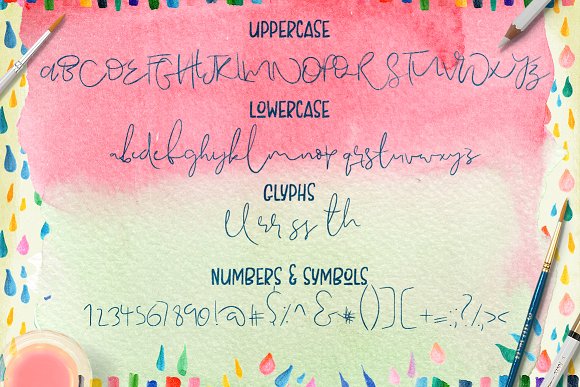 UPPERCASE
ABCDEFGHIJKLMNOPQRSTUVWXYZ
LOWERCASE
abcdefghijklmnopqrstuvwxyz
GLYPHS
U rr ss th
NUMBERS & SYMBOLS
1234567890!@#$%^&*()[]{+=:;?/,><